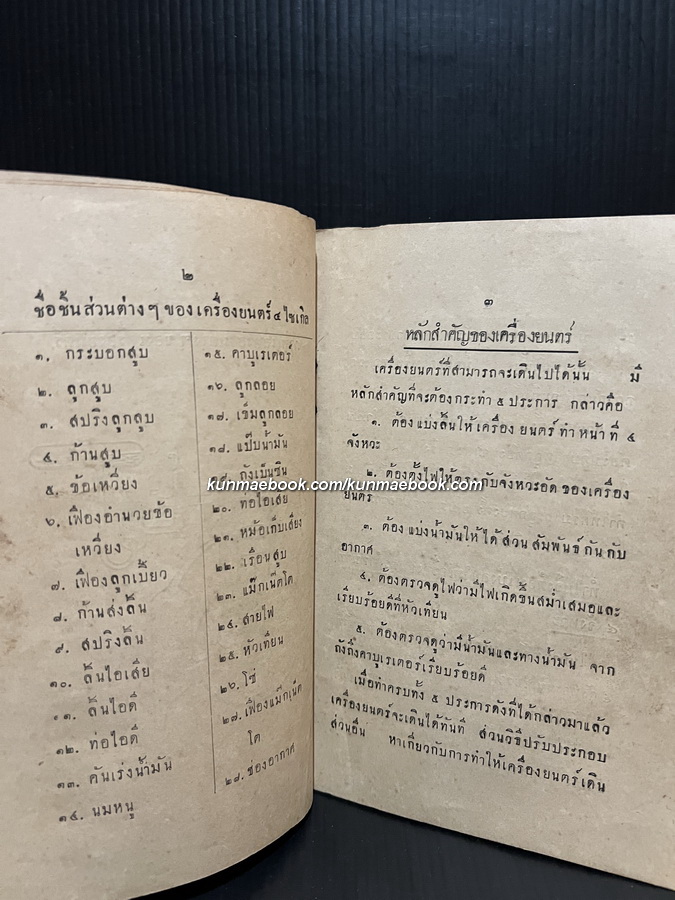 ๒
ชื่อชิ้นส่วนต่างๆ ของเครื่องยนตร์ ๔ ไซเกิล
๑. กระบอกสูบ
๒. ลูกสูบ
๓. สปริงลูกสูบ
๔. ก้านสูบ
๕. ข้อเหวี่ยง
๖. เฟืองอำนวยข้อ
เหวี่ยง
๗. เฟืองลูกเบี้ยว
๘. ก้านส่งลิ้น
๙. สปริงลิ้น
๑๐. ลิ้นไอเสีย
๑๑. ลิ้นไอดี
๑๒. ท่อไอดี
๑๓. คันเร่งน้ำมัน
๑๔. นมหนู
๑๕. คาบูเรเตอร์
๑๖. ลูกลอย
๑๗. เข็มลูกลอย
๑๘. แป๊บน้ำมัน
๑๙. ถังเบ็นซิน
๒๐. ท่อไอเสีย
๒๑. หม้อเก็บเสียง
๒๒. เรือนสูบ
๒๓. แม๊กเน็ตโต
๒๔. สายไฟ
๒๕. หัวเทียน
๒๖. โซ่
๒๗. เฟืองแม๊กเน็ต
โต
๒๘. ช่องอากาศ
๓
หลักสำคัญของเครื่องยนตร์
เครื่องยนตร์ที่สามารถจะเดินไปได้นั้น มี
หลักสำคัญที่จะต้องกระทำ ๕ ประการ กล่าวคือ
๑. ต้องแบ่งลิ้นให้เครื่องยนตร์ทำหน้าที่ ๔
จังหวะ
๒. ต้องตั้งไฟให้ตรงกับจังหวะอัดของเครื่อง
ยนตร์
kunmaebook.com/kunmaebook.com
๓. ต้องแบ่งน้ำมันให้ได้ส่วนสัมพันธ์กันกับ
อากาศ
๔. ต้องตรวจดูไฟว่ามีไฟเกิดขึ้นสม่ำเสมอและ
เรียบร้อยดีที่หัวเทียน
๕. ต้องตรวจดูว่ามีน้ำมันและทางน้ำมัน จาก
ถังถึงคาบูเรเตอร์เรียบร้อยดี
เมื่อทำครบทั้ง ๕ ประการดังที่ได้กล่าวมาแล้ว
เครื่องยนตร์จะเดินได้ทันที ส่วนวิธีปรับประกอบ
ส่วนอื่น หาเกี่ยวกับการทำให้เครื่องยนตร์เดิน